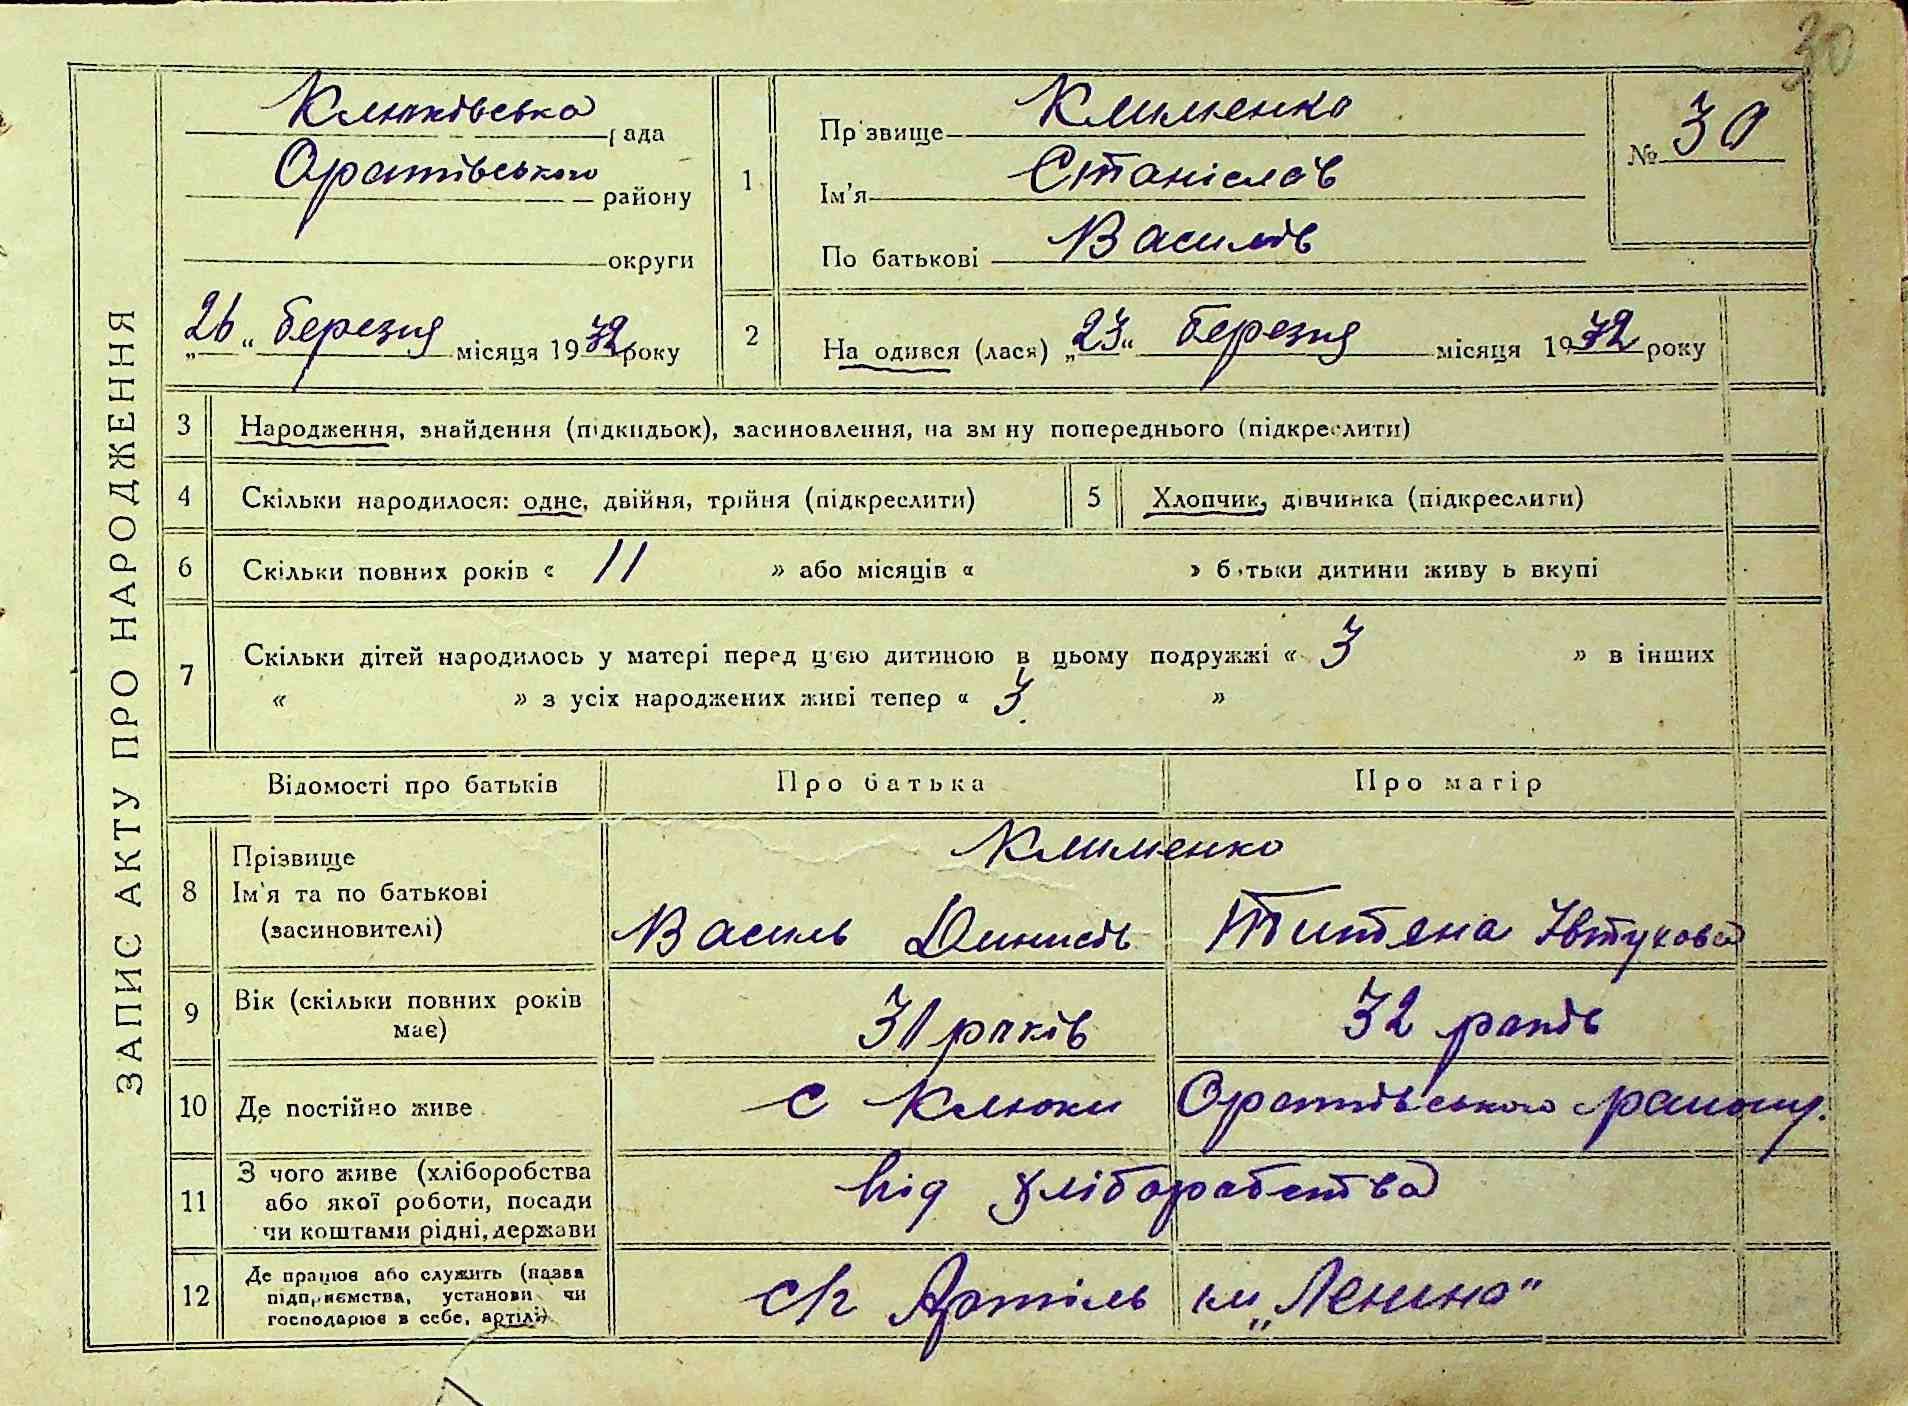 30
ЗАПИС АКТУ ПРО НАРОДЖЕННЯ
Клюківська рада
Оратівського району
округи
„26" березня місяця 1932 року
1
Прізвище Клименко
Ім'я Станіслав
По батькові Василів
№ 30
2
Народився (лася) „23" березня місяця 1932 року
3 Народження, знайдення (підкидьок), засиновлення, на зміну попереднього (підкреслити)
4 Скільки народилося: одне, двійня, трійня (підкреслити)
5 Хлопчик, дівчинка (підкреслити)
6 Скільки повних років « 11 » або місяців « » батьки дитини живуть вкупі
7 Скільки дітей народилось у матері перед цією дитиною в цьому подружжі « 3 » в інших
« » з усіх народжених живі тепер « 3 »
Відомості про батьків Про батька Про матір
8 Прізвище
Ім'я та по батькові
(засиновителі)
Клименко
Василь Динисів Титяна Івтухова
9 Вік (скільки повних років
має)
31 років 32 років
10 Де постійно живе с Клюки Оратівського району.
11 З чого живе (хліборобства
або якої роботи, посади
чи коштами рідні, держави
від хліборобства
12 Де працює або служить (назва
підприємства, установи чи
господарює в себе, артілі)
с/г Артіль ім „Леніна"